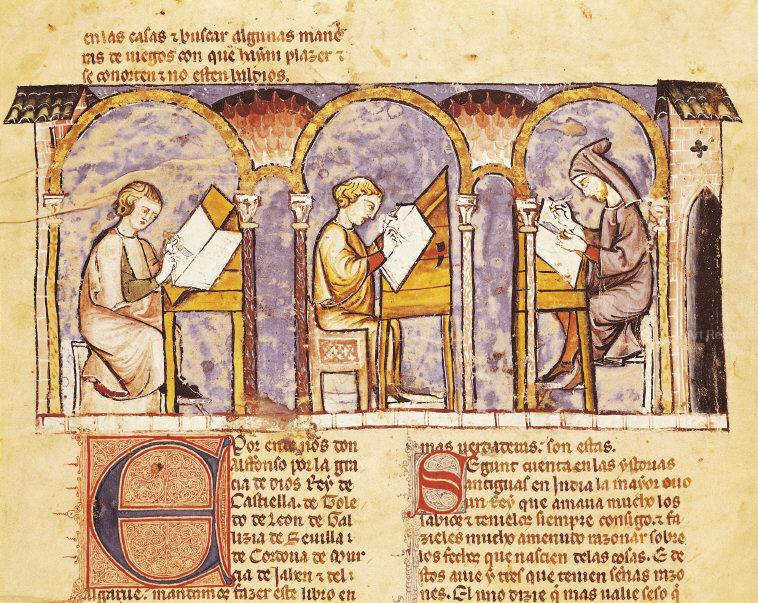 en las casas ⁊ buscar algunas mane
ras de iuegos con que hayan plazer ⁊
se conorten ⁊ no esten baldios.
Por ende nos don
Alfonso por la gra
cia de dios Rey de
Castiella. de Tole
do de Leon de Gal
lizia de Seuilla ⁊
de Cordoua de Mur
cia de Jahen ⁊ del
algarue. mandamos fazer este libro en
mas uerdaderas. son estas.
Segunt cuenta en las ystorias
antiguas en India la mayor ouo
un Rey que amaua mucho los
sabios ⁊ tenielos siempre consigo. ⁊ fa
zieles mucho amenudo razonar sobre
los fechos que nascien delas cosas. E de
stos auie y tres que tenien senas razo
nes. El uno dizie q̃ mas ualie seso q̃